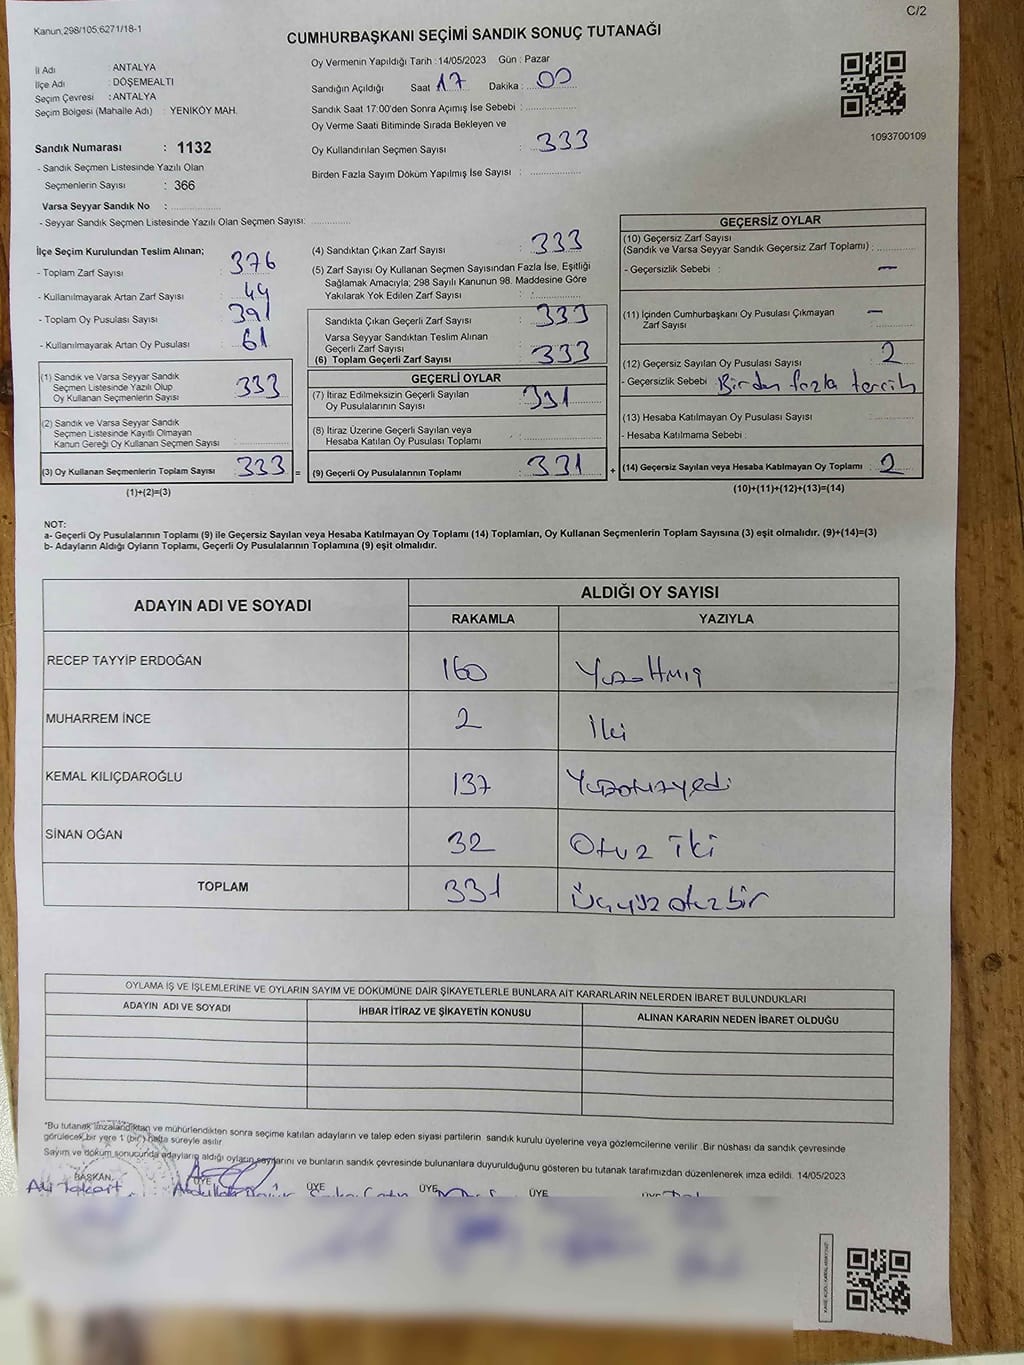 Kanun,298/105;6271/18-1
C/2
CUMHURBAŞKANI SEÇİMİ SANDIK SONUÇ TUTANAĞI
İl Adı : ANTALYA
İlçe Adı : DÖŞEMEALTI
Seçim Çevresi : ANTALYA
Seçim Bölgesi (Mahalle Adı) : YENİKÖY MAH.
Sandık Numarası : 1132
- Sandık Seçmen Listesinde Yazılı Olan
Seçmenlerin Sayısı : 366
Varsa Seyyar Sandık No :
- Seyyar Sandık Seçmen Listesinde Yazılı Olan Seçmen Sayısı:
Oy Vermenin Yapıldığı Tarih : 14/05/2023 Gün : Pazar
Sandığın Açıldığı Saat 17 Dakika : 00
Sandık Saat 17:00'den Sonra Açımış İse Sebebi :
Oy Verme Saati Bitiminde Sırada Bekleyen ve
Oy Kullandırılan Seçmen Sayısı : 333
Birden Fazla Sayım Döküm Yapılmış İse Sayısı :
1093700109
İlçe Seçim Kurulundan Teslim Alınan;
- Toplam Zarf Sayısı : 376
- Kullanılmayarak Artan Zarf Sayısı : 44
- Toplam Oy Pusulası Sayısı : 391
- Kullanılmayarak Artan Oy Pusulası : 61
(1) Sandık ve Varsa Seyyar Sandık
Seçmen Listesinde Yazılı Olup
Oy Kullanan Seçmenlerin Sayısı : 333
(2) Sandık ve Varsa Seyyar Sandık
Seçmen Listesinde Kayıtlı Olmayan
Kanun Gereği Oy Kullanan Seçmen Sayısı :
(3) Oy Kullanan Seçmenlerin Toplam Sayısı : 333 =
(1)+(2)=(3)
(4) Sandıktan Çıkan Zarf Sayısı : 333
(5) Zarf Sayısı Oy Kullanan Seçmen Sayısından Fazla İse, Eşitliği
Sağlamak Amacıyla; 298 Sayılı Kanunun 98. Maddesine Göre
Yakılarak Yok Edilen Zarf Sayısı :
Sandıkta Çıkan Geçerli Zarf Sayısı : 333
Varsa Seyyar Sandıktan Teslim Alınan
Geçerli Zarf Sayısı :
(6) Toplam Geçerli Zarf Sayısı : 333
GEÇERLİ OYLAR
(7) İtiraz Edilmeksizin Geçerli Sayılan
Oy Pusulalarının Sayısı : 331
(8) İtiraz Üzerine Geçerli Sayılan veya
Hesaba Katılan Oy Pusulası Toplamı :
(9) Geçerli Oy Pusulalarının Toplamı : 331 +
GEÇERSİZ OYLAR
(10) Geçersiz Zarf Sayısı
(Sandık ve Varsa Seyyar Sandık Geçersiz Zarf Toplamı) :
- Geçersizlik Sebebi : —
(11) İçinden Cumhurbaşkanı Oy Pusulası Çıkmayan
Zarf Sayısı : —
(12) Geçersiz Sayılan Oy Pusulası Sayısı : 2
- Geçersizlik Sebebi : Birden fazla tercih
(13) Hesaba Katılmayan Oy Pusulası Sayısı :
- Hesaba Katılmama Sebebi :
(14) Geçersiz Sayılan veya Hesaba Katılmayan Oy Toplamı : 2
(10)+(11)+(12)+(13)=(14)
NOT:
a- Geçerli Oy Pusulalarının Toplamı (9) ile Geçersiz Sayılan veya Hesaba Katılmayan Oy Toplamı (14) Toplamları, Oy Kullanan Seçmenlerin Toplam Sayısına (3) eşit olmalıdır. (9)+(14)=(3)
b- Adayların Aldığı Oyların Toplamı, Geçerli Oy Pusulalarının Toplamına (9) eşit olmalıdır.
ADAYIN ADI VE SOYADI ALDIĞI OY SAYISI
RAKAMLA YAZIYLA
RECEP TAYYİP ERDOĞAN 160 Yüzaltmış
MUHARREM İNCE 2 İki
KEMAL KILIÇDAROĞLU 137 Yüzotuzyedi
SİNAN OĞAN 32 Otuz iki
TOPLAM 331 Üçyüzotuzbir
OYLAMA İŞ VE İŞLEMLERİNE VE OYLARIN SAYIM VE DÖKÜMÜNE DAİR ŞİKAYETLERLE BUNLARA AİT KARARLARIN NELERDEN İBARET BULUNDUKLARI
ADAYIN ADI VE SOYADI İHBAR İTİRAZ VE ŞİKAYETİN KONUSU ALINAN KARARIN NEDEN İBARET OLDUĞU
*Bu tutanak imzalandıktan ve mühürlendikten sonra seçime katılan adayların ve talep eden siyasi partilerin sandık kurulu üyelerine veya gözlemcilerine verilir. Bir nüshası da sandık çevresinde
görülecek bir yere 1 (bir) hafta süreyle asılır.
Sayım ve döküm sonucunda adayların aldığı oyların sayılarını ve bunların sandık çevresinde bulunanlara duyurulduğunu gösteren bu tutanak tarafımızdan düzenlenerek imza edildi. 14/05/2023
BAŞKAN ÜYE ÜYE ÜYE ÜYE